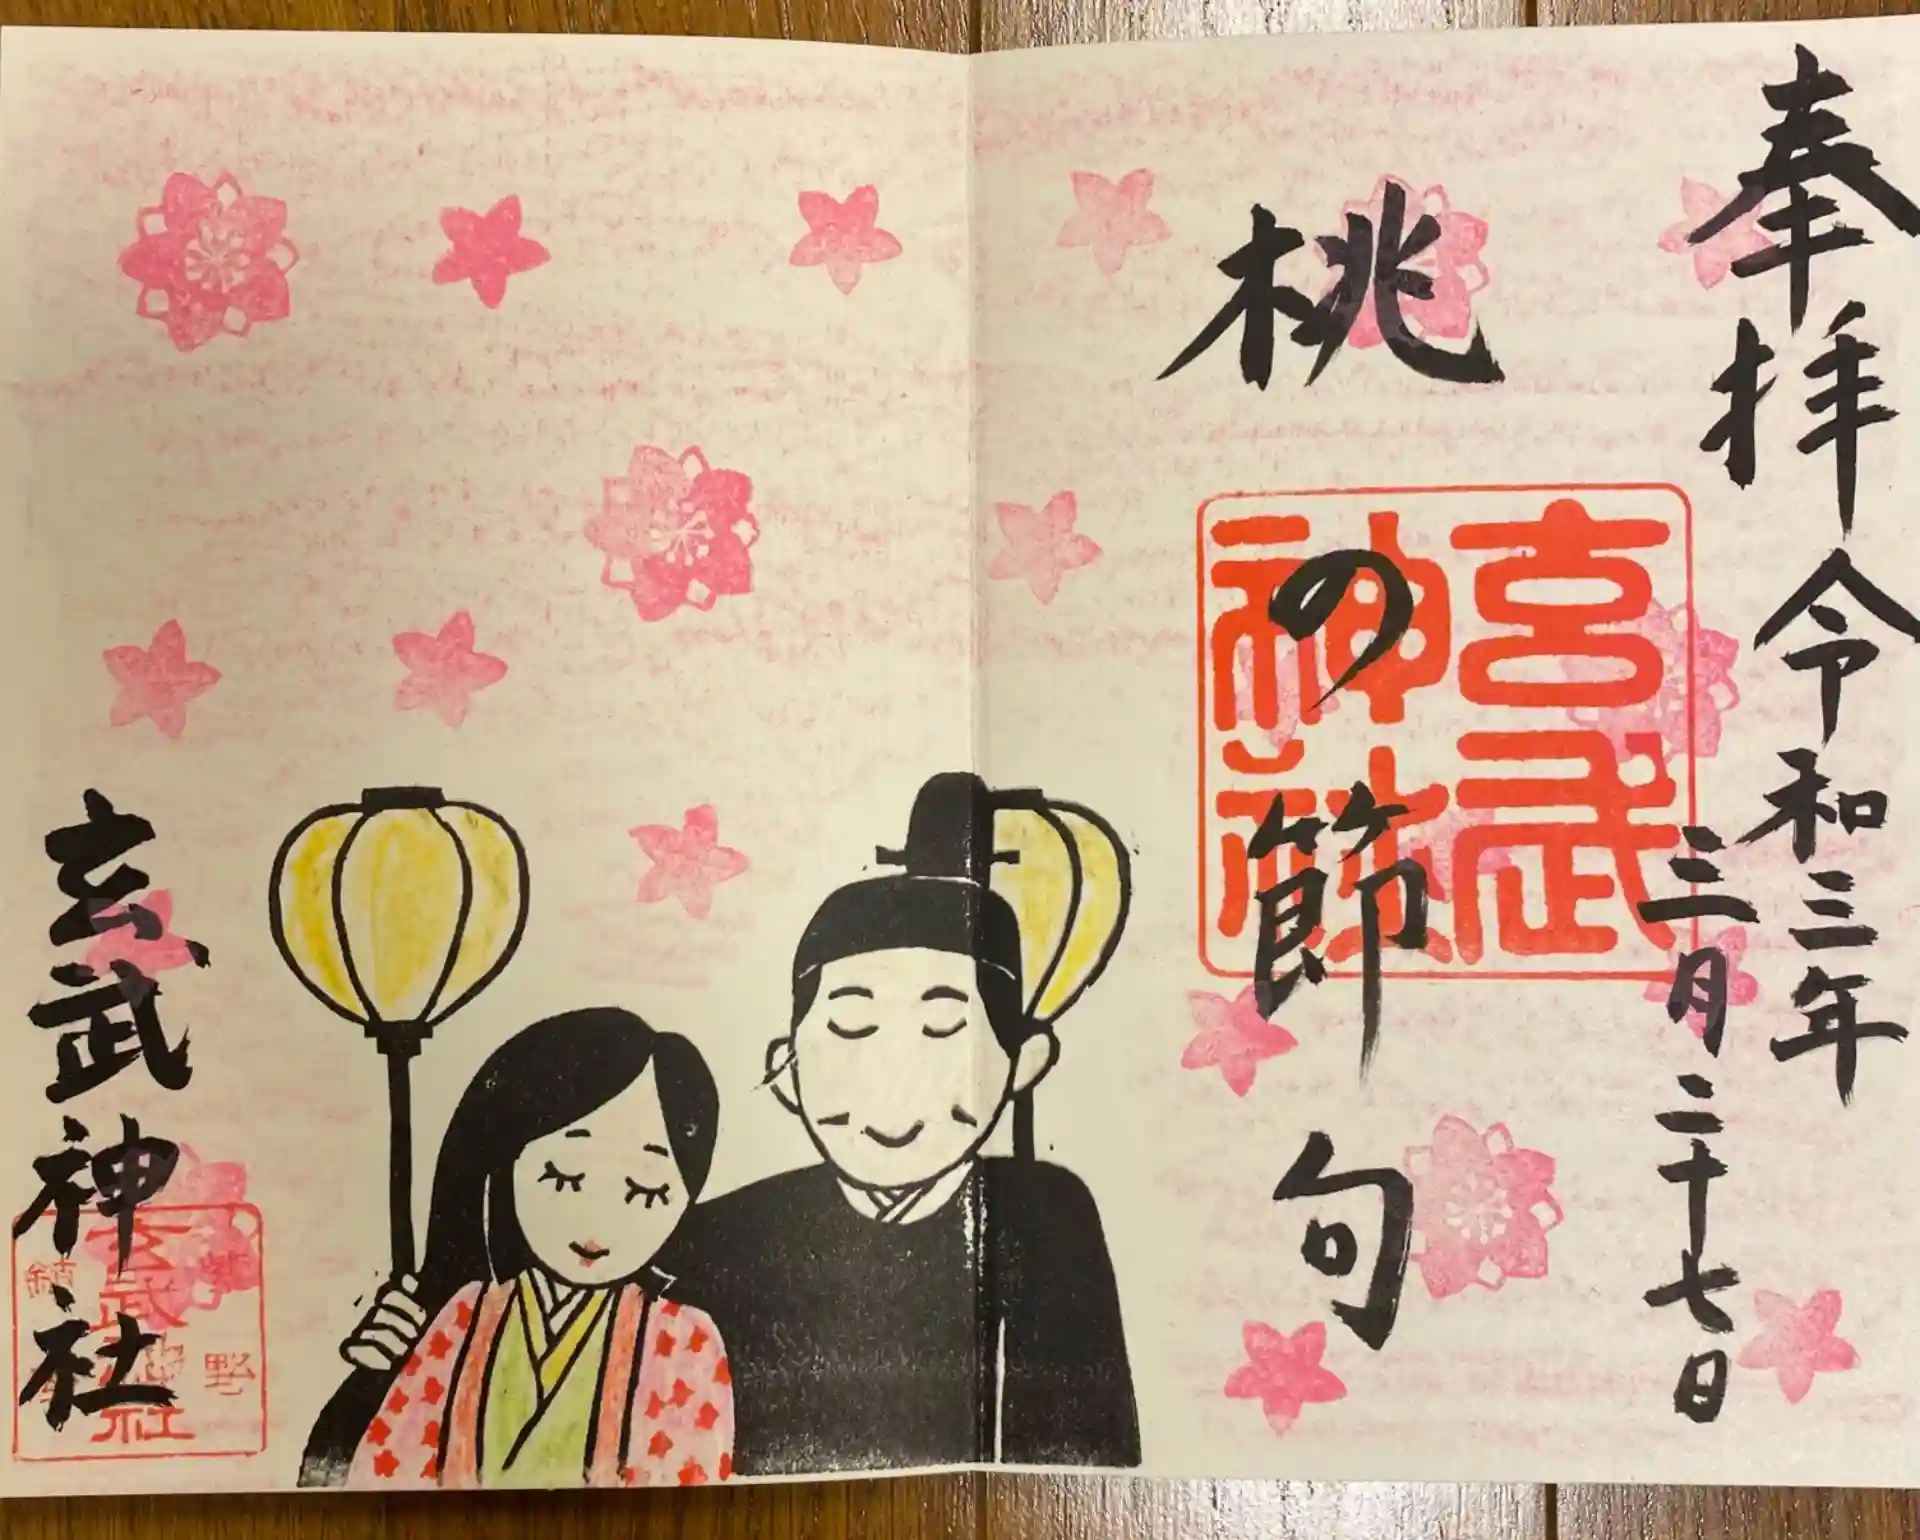 奉拝 令和三年
三月二十七日
桃の節句
玄武
神社
玄武神社
紫野
玄武神社